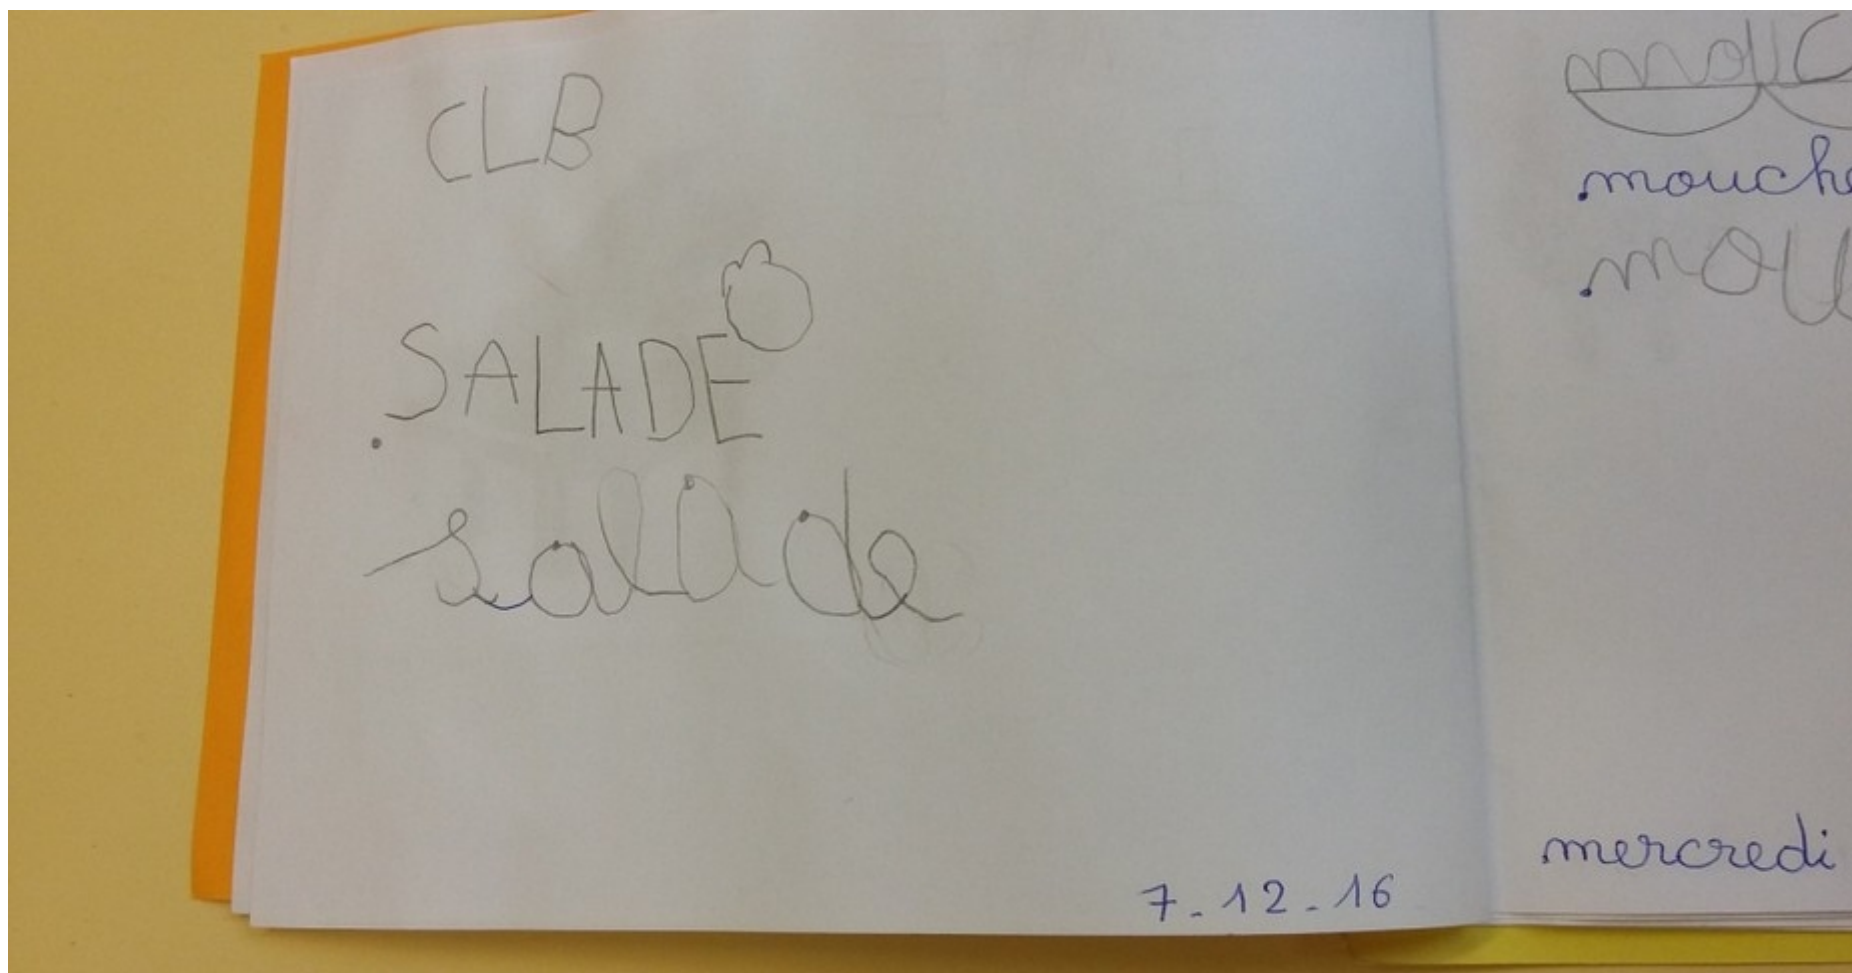 CLB
SALADE
salade
7-12-16
mouche
mou
mercredi